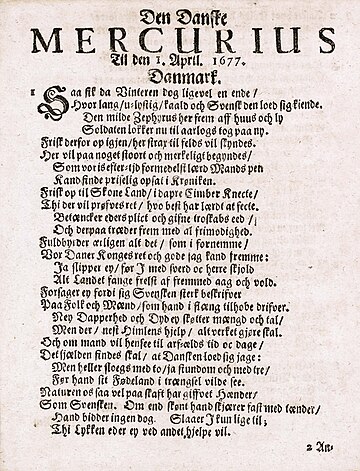 Den Danske
MERCURIUS
Til den 1. April. 1677.
Danmark.
1 Saa fik da Vinteren dog ligevel en ende/
Hvor lang/u-lystig/kaald och Svensk den loed sig kiende.
Den milde Zephyrus her frem aff huus och ly
Soldaten lokker nu til aarlogs tog paa ny.
Frisk derfor op igien/her strax til felds vil skyndes.
Her vil paa noget stoort och merkeligt begyndes/
Som vor is efter-tid formedelst lærd Mands pen
Kand finde priselig opsat i Kroniken.
Frisk op til Skone Land/i dapre Cimber Knecte/
Thi der vil prøfves ret/ hvo best har lærdt at fecte.
Betæncker eders plict och gifne troskabs eed/
Och der paa træder frem med al frimodighed.
Fuldbyrder ærligen alt det/ som i fornemme/
Vor Daner Konges ret och gode sag kand fremme:
Ja slipper ey/før I med sverd oc herre skjold
Alt Landet fange frelst af fremmed aag och vold.
Forsager ey fordi sig Svensken sterk beskrifver
Paa Folk och Mænd/som hand i stæng tilhobe drifver.
Ney Dapperhed och Dyd ey skøtter mængd och tal/
Men der/ nest Himlens hjelp/ alt verket gjøre skal.
Och om mand vil hensee til arfælds tid oc dage/
Det sjælden findes skal/ at Dansken loed sig jage:
Men heller sloegs med to/ja stundom och med tre/
Før hand sit Fødeland i trængsel vilde see.
Naturen os saa vel paa skaft har giffvet Hænder/
Som Svensken. Om end skønt hand skjærer fast med tænder/
Hand bidder ingen dog. Slaaer I kun lige til;
Thi Lykken eder ey ved andet hjelpe vil.
2 An-